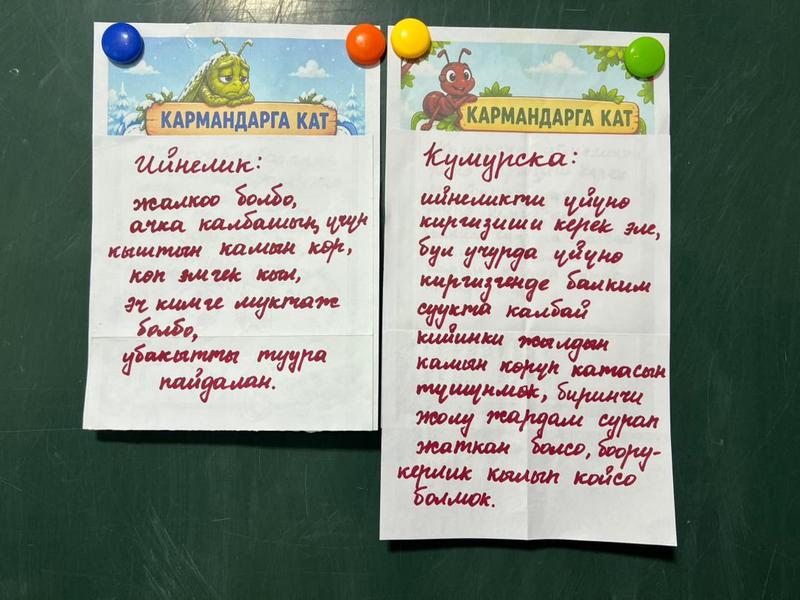 КАРМАНДАРГА КАТ
Ийнелик:
жалкоо болбо,
ачка калбашың үчүн
кыштын камын көр,
көп эмгек кыл,
эч кимге муктаж
болбо,
убакытты туура
пайдалан.
КАРМАНДАРГА КАТ
Кумурска:
ийнеликти үйүнө
киргизиши керек эле,
бул учурда үйүнө
киргизгенде балким
суукта калбай
кийинки жылдын
камын көрүп катасын
түшүнмөк, биринчи
жолу жардам сурап
жаткан болсо, боору-
керлик кылып койсо
болмок.